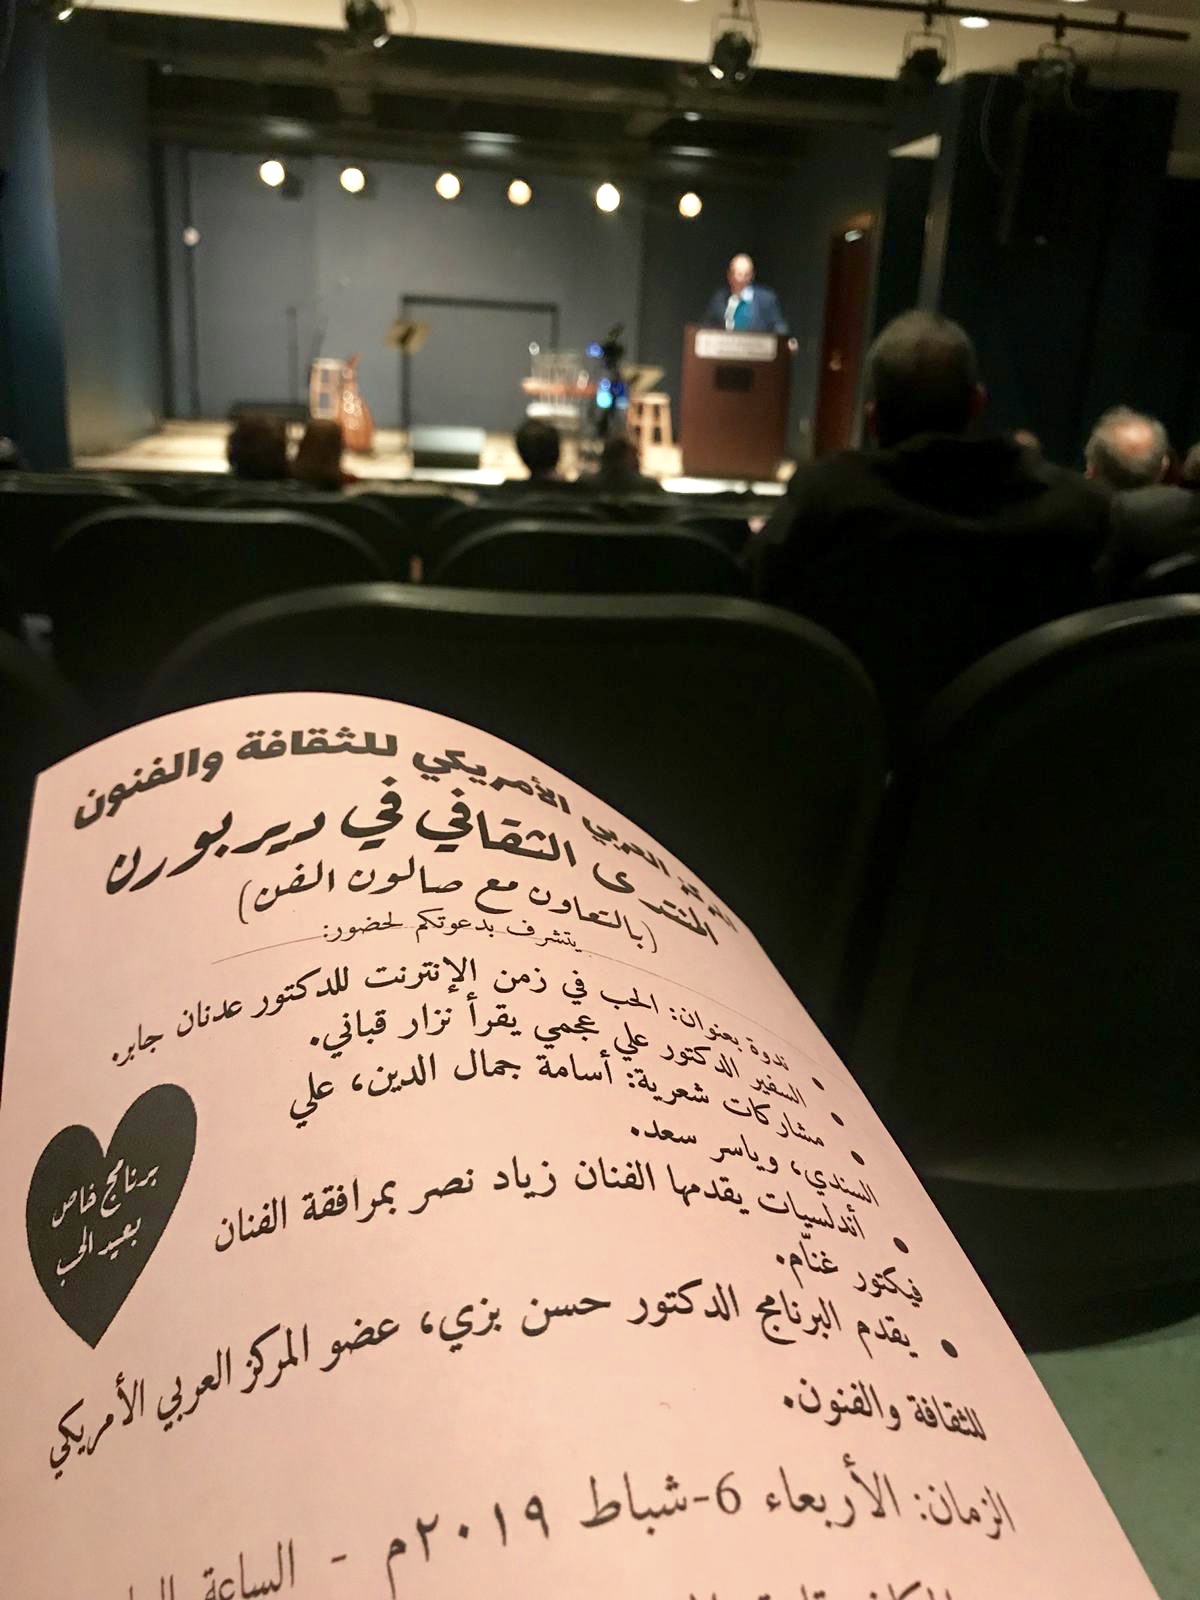 المركز العربي الأمريكي للثقافة والفنون
المنتدى الثقافي في ديربورن
(بالتعاون مع صالون الفن)
يتشرف بدعوتكم لحضور:
• ندوة بعنوان: الحب في زمن الإنترنت للدكتور عدنان جابر.
• السفير الدكتور علي عجمي يقرأ نزار قباني.
• مشاركات شعرية: أسامة جمال الدين، علي
السندي، وياسر سعد.
• أندلسيات يقدمها الفنان زياد نصر بمرافقة الفنان
فيكتور غنّام.
• يقدم البرنامج الدكتور حسن بزي، عضو المركز العربي الأمريكي
للثقافة والفنون.
الزمان: الأربعاء 6-شباط ٢٠١٩م - الساعة
برنامج خاص
بعيد الحب